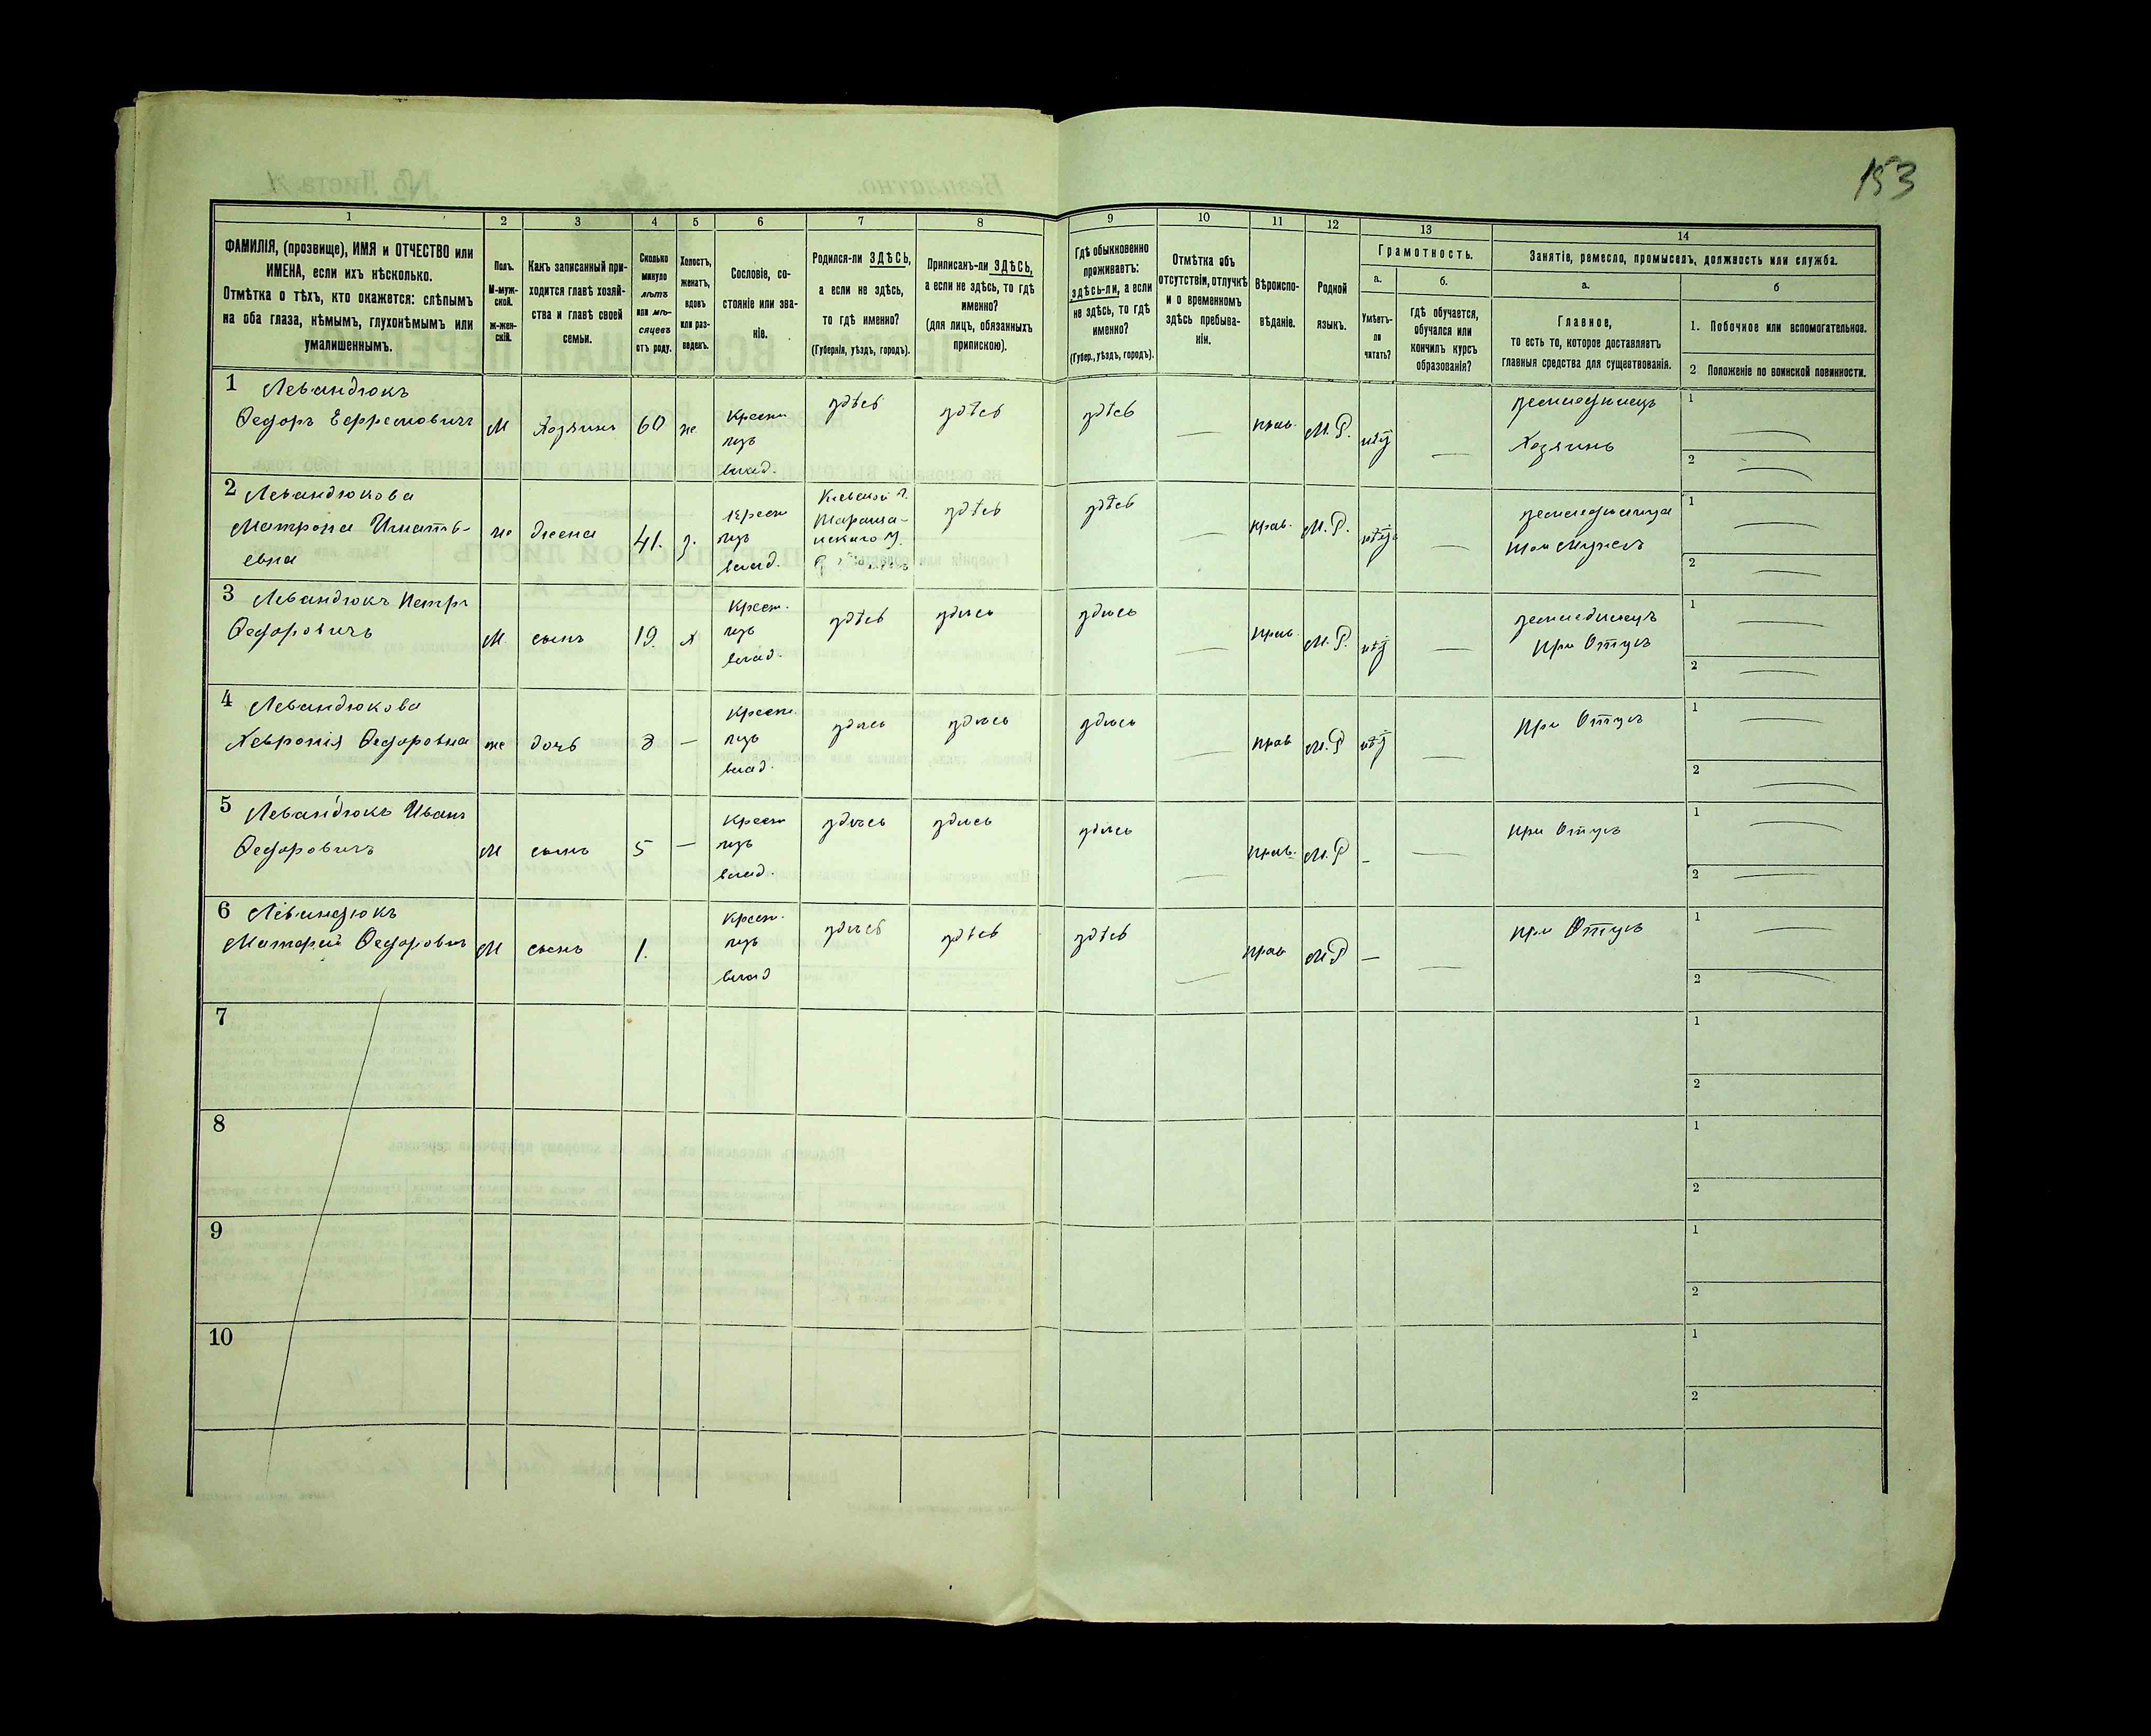 153
1
2
3
4
5
6
7
8
9
10
11
12
13
14
ФАМИЛІЯ, (прозвище), ИМЯ и ОТЧЕСТВО или
ИМЕНА, если ихъ нѣсколько.
Отмѣтка о тѣхъ, кто окажется: слѣпымъ
на оба глаза, нѣмымъ, глухонѣмымъ или
умалишеннымъ.
Полъ.
М-муж-
ской.
ж-жен-
скій.
Какъ записанный при-
ходится главѣ хозяй-
ства и главѣ своей
семьи.
Сколько
минуло
лѣтъ
или мѣ-
сяцевъ
отъ роду.
Холостъ,
женатъ,
вдовъ
или раз-
веденъ.
Сословіе, со-
стояніе или зва-
ніе.
Родился-ли ЗДѢСЬ,
а если не здѣсь,
то гдѣ именно?
(Губернія, уѣздъ, городъ).
Приписанъ-ли ЗДѢСЬ,
а если не здѣсь, то гдѣ
именно?
(для лицъ, обязанныхъ
припискою).
Гдѣ обыкновенно
проживаетъ:
здѣсь-ли, а если
не здѣсь, то гдѣ
именно?
(Губер., уѣздъ, городъ).
Отмѣтка объ
отсутствіи, отлучкѣ
и о временномъ
здѣсь пребыва-
ніи.
Вѣроиспо-
вѣданіе.
Родной
языкъ.
Грамотность.
а.
Умѣетъ-
ли
читать?
б.
Гдѣ обучается,
обучался или
кончилъ курсъ
образованія?
Занятіе, ремесло, промыселъ, должность или служба.
а.
Главное,
то есть то, которое доставляетъ
главныя средства для существованія.
б
1. Побочное или вспомогательное.
2 Положеніе по воинской повинности.
1 Левандюкъ
Ѳедоръ Ефремовичъ
М Хозяинъ 60 ж
Крест
изъ
влад.
здѣсь здѣсь здѣсь — прав. М.Р. нѣтъ —
земледѣлецъ
Хозяинъ
1 —
2 —
2 Левандюкова
Матрона Игнать-
евна
ж жена 41. з.
Крест
изъ
влад.
Кіевской г.
Тараща-
нскаго у.
здѣсь здѣсь — прав. М.Р. нѣтъ —
при мужѣ
1 —
2 —
3 Левандюкъ Петръ
Ѳедоровичъ
М сынъ 19. х
Крест.
изъ
влад.
здѣсь здѣсь здѣсь — прав. М.Р. нѣтъ —
земледѣлецъ
при Отцѣ
1 —
2 —
4 Левандюкова
Хевронія Ѳедоровна
ж дочь —
Крест.
изъ
влад.
здѣсь здѣсь здѣсь — прав М.Р нѣтъ —
При Отцѣ
1 —
2 —
5 Левандюкъ Иванъ
Ѳедоровичъ
М сынъ 5 —
Крест
изъ
влад.
здѣсь здѣсь здѣсь — прав. М.Р — —
при Отцѣ
1 —
2 —
6 Левандюкъ
Матфей Ѳедорович
М сынъ 1.
Крест.
изъ
влад
здѣсь здѣсь здѣсь — прав М.Р — —
при Отцѣ
1 —
2 —
7
1
2
8
1
2
9
1
2
10
1
2